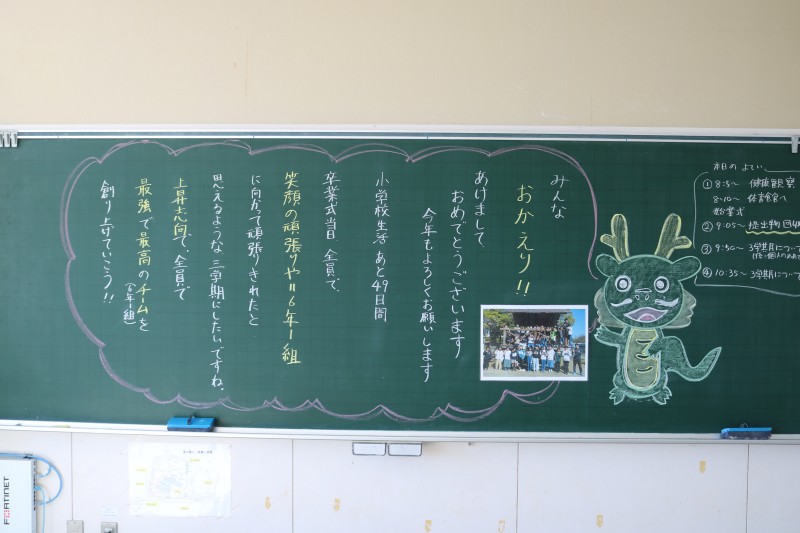 みんな
おかえり!!
あけまして
おめでとうございます
今年もよろしくお願いします
小学校生活 あと49日間
卒業式当日 全員で、
笑顔の頑張りや=6年1組
に向かって頑張りきれたと
思えるような 三学期にしたいですね。
上昇志向で、全員で
最強で最高のチームを
(6年1組)
創り上げていこう!!
本日の よてい
① 8:5〜 健康観察
8:10〜 体育館へ
始業式
② 9:05〜 提出物回収
③ 9:50〜 3学期について
④ 10:35〜 3学期について
FORTINET